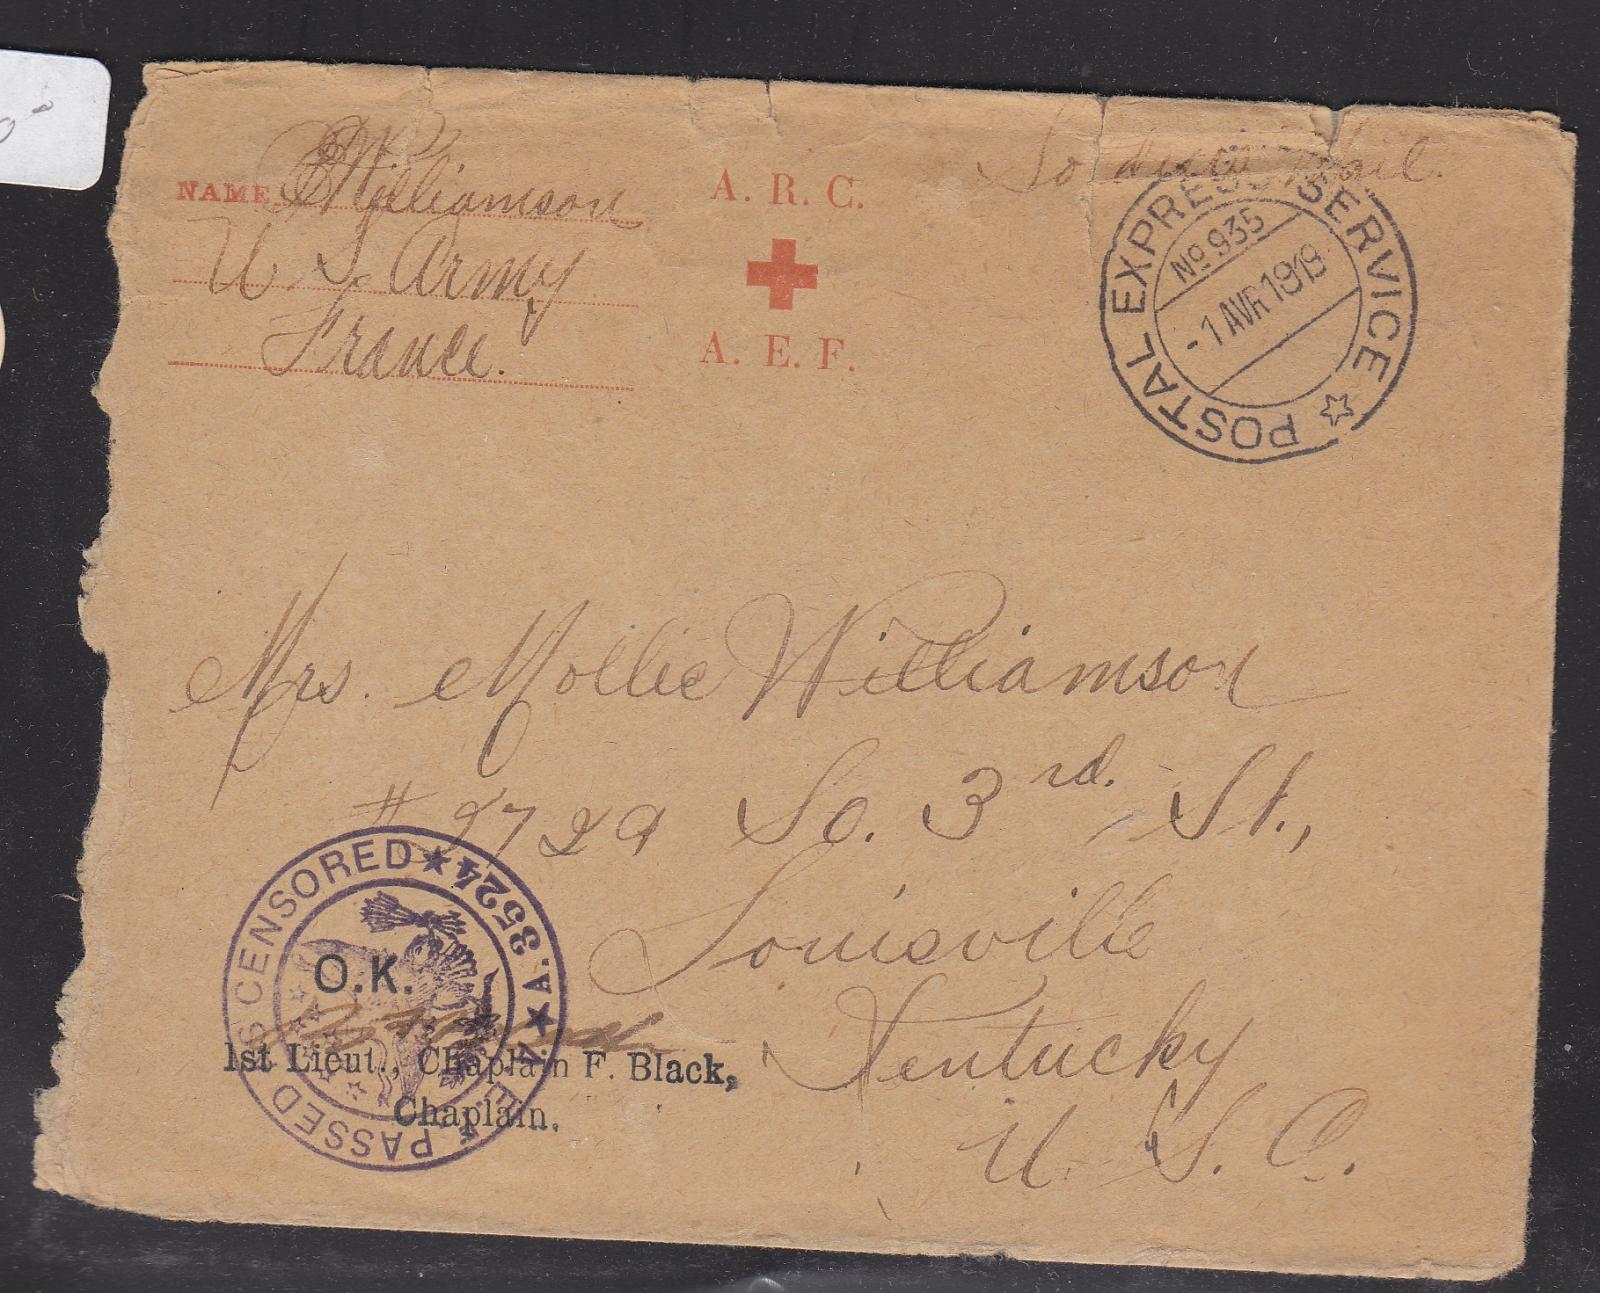 NAME E Williamson
U S Army
France.
A. R. C.
A. E. F.
Soldier's Mail.
POSTAL EXPRESS SERVICE
No 935
- 1 AVR 1919
Mrs. Mollie Williamson
# 2729 So. 3rd. St.,
Louisville
Kentucky
U. S. A.
PASSED AS CENSORED ★ A.E.F. ★ A. 3524 ★
O.K.
1st Lieut., Chaplain F. Black,
Chaplain.